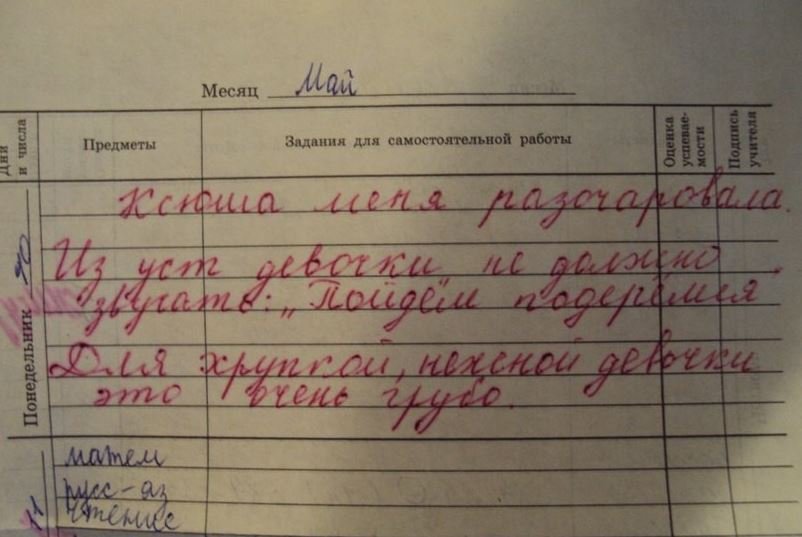 Месяц Май
Дни и числа
Предметы
Задания для самостоятельной работы
Оценка успевае-
мости
Подпись учителя
Понедельник
Ксюша меня разочаровала.
Из уст девочки не должно
звучать: „Пойдём подерёмся".
Для хрупкой, нежной девочки
это очень грубо.
матем
русс-яз
чтение